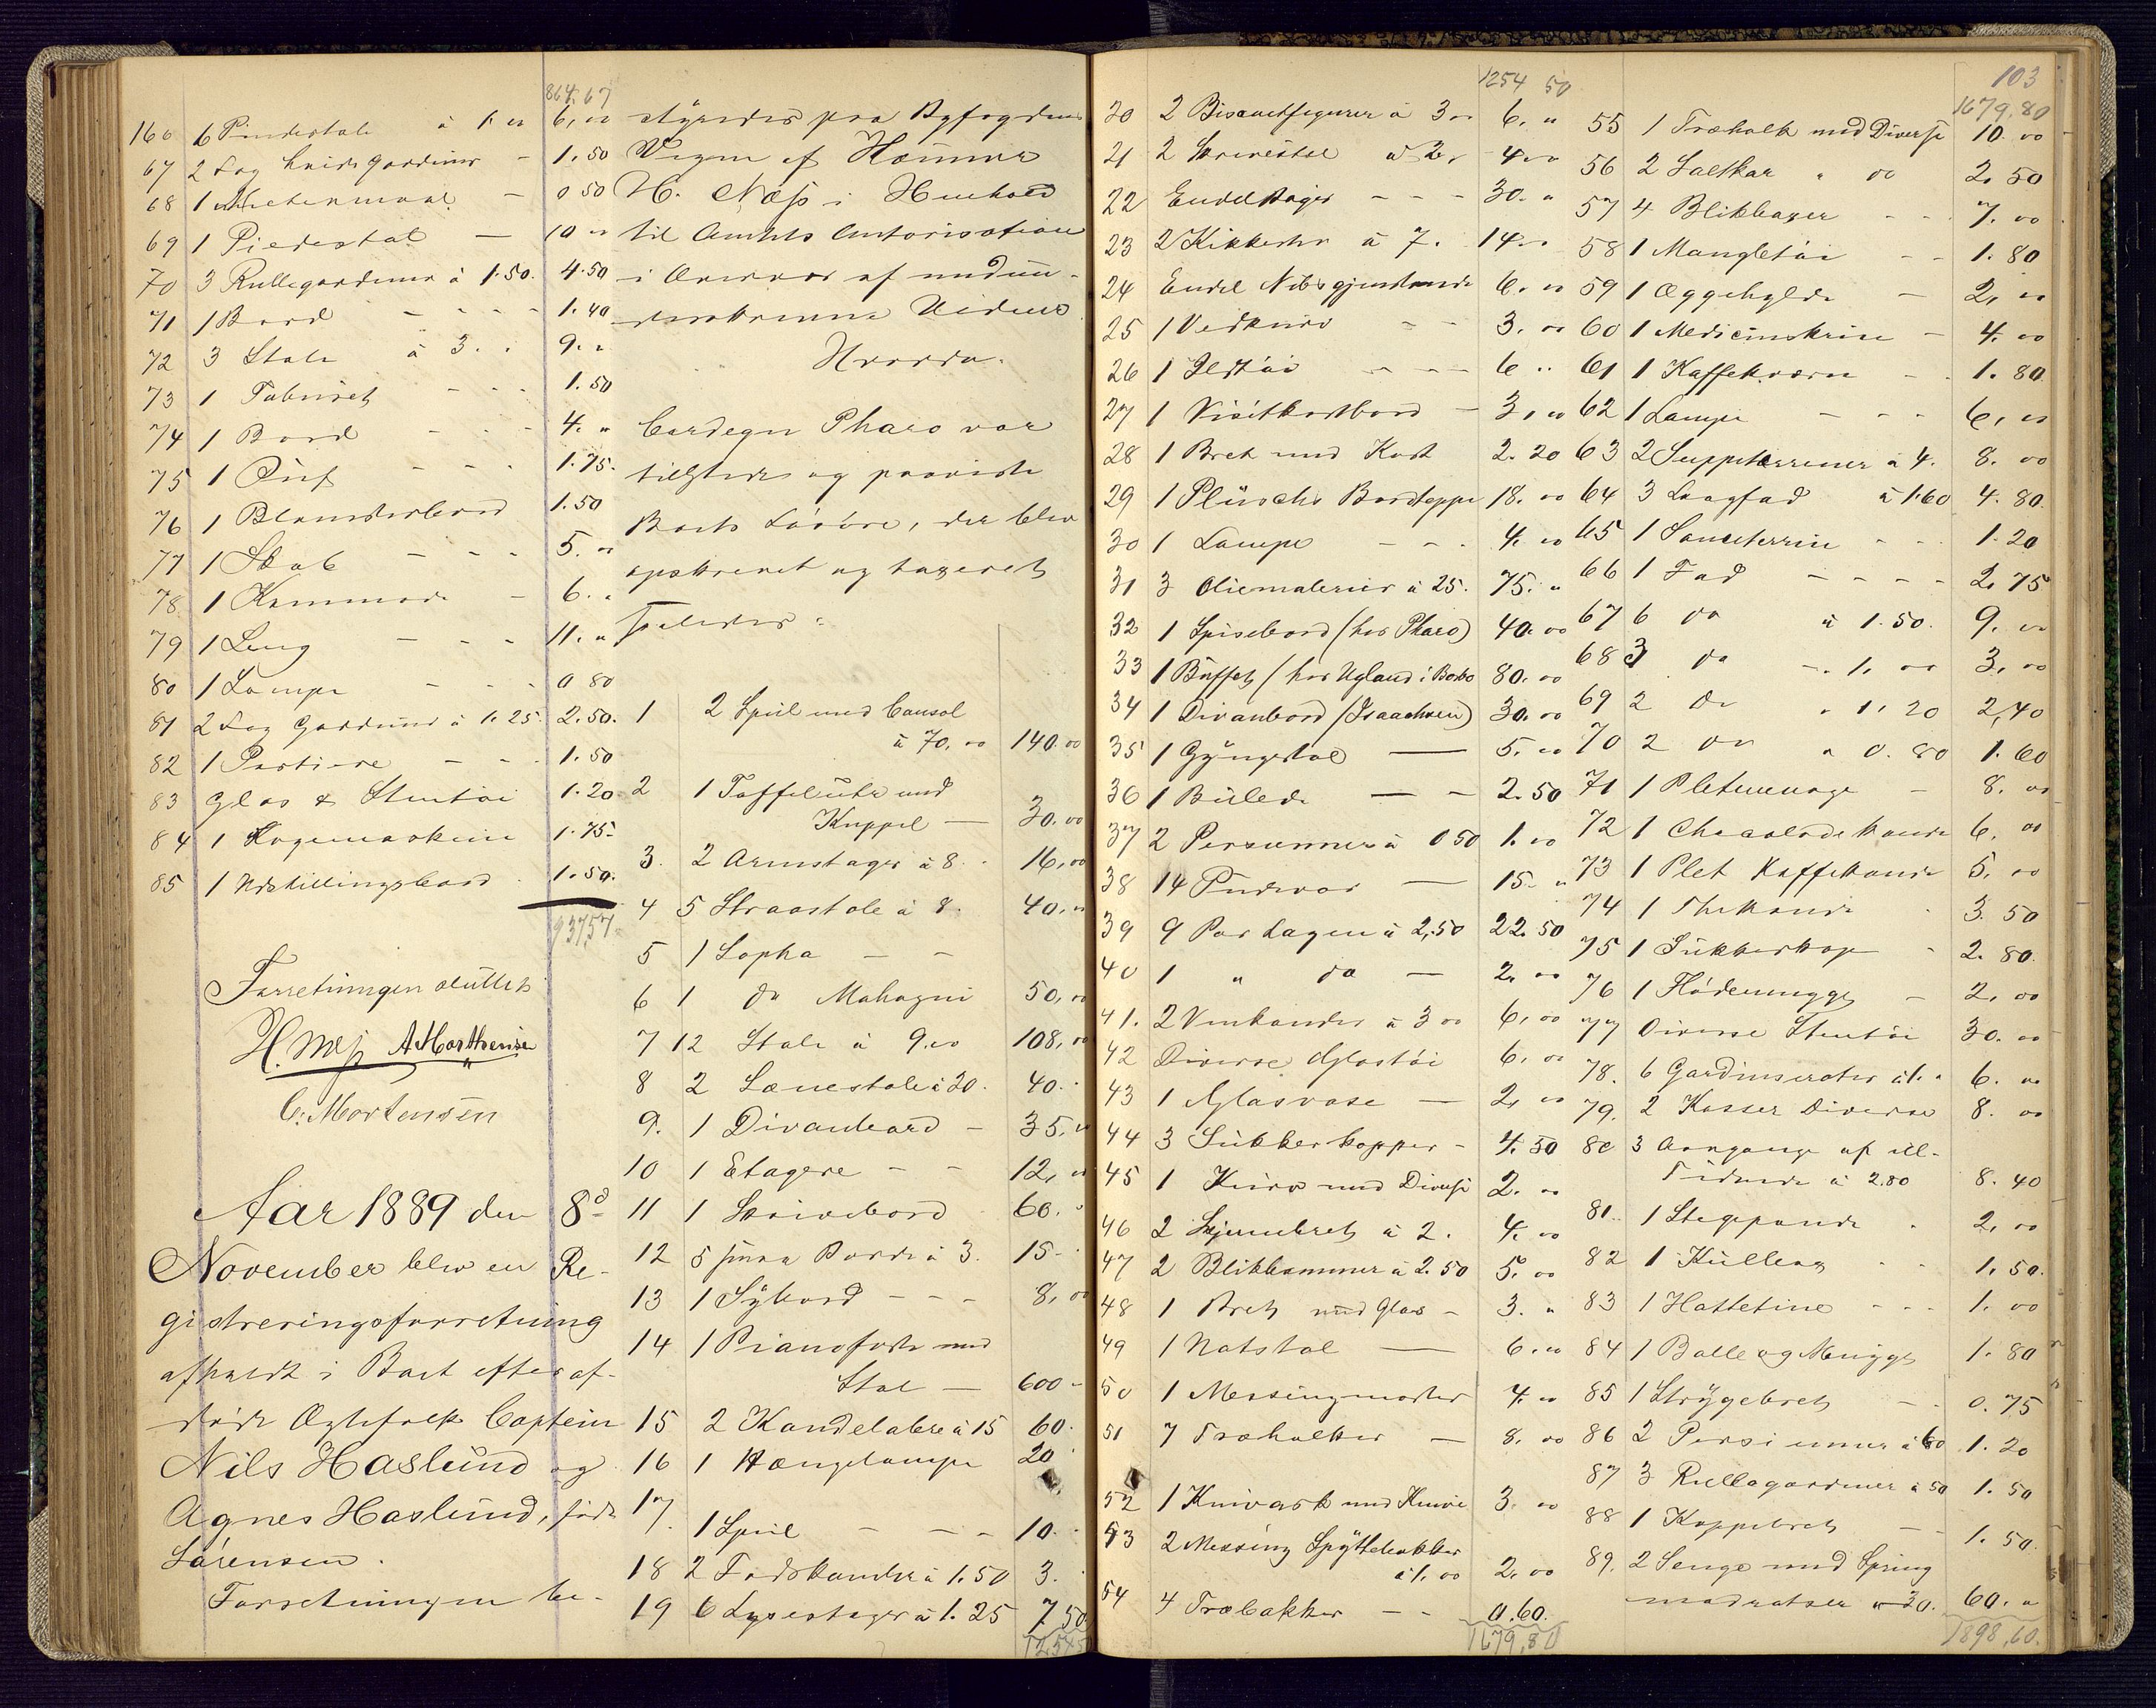 864.67
166 6 Pindestole à 1.00 6,00
67 2 Fag hvide Gardiner - 1.50
68 1 0 50
69 1 Piedestal — 10 00
70 3 Rullegardiner à 1.50. 4.50
71 1 Bord - - - - 1.40
72 3 Stole à 3. 9.
73 1 Taburet - - - 1.50
74 1 Bord - - - 4. "
75 1 Puf - - - 1.75.
76 1 Blomsterbord 1.50
77 1 Skab - - - 5. 00
78 1 Kommode - 6. "
79 1 Seng - - - 11. "
80 1 Lampe - - - 0 80
81 2 Fag Gardiner à 1.25. 2.50.
82 1 Portiere - - - 1.50
83 Glas & Stentöi 1.20
84 1 Kogemaskine 1.75
85 1 Udstillingsbord 1.50.
937,57
Forretningen sluttet.
H. Næss A Morthensen
C. Mortensen
Aar 1889 den 8d
November blev en Re-
gistreringsforretning
afholdt i Boet efter af-
døde Ægtefolk Captein
Nils Haslund og
Agnes Haslund, født
Sörensen.
Forretningen be-
styredes paa Byfogdens
Vegne af
H. Næss i Henhold
til Amtets Autorisation
i Overvær af undün-
derskrevne Vidner
Hvorda.
Cardegn Pharo var
tilstede og paaviste
Boets Løsøre, der blev
opskrevet og taxeret
saaledes:
1 2 Speil med Consol
à 70.00 140.00
2 1 Taffelühr med
Kuppel — 30.00
3. 2 Armstager à 8. 16,00
4 5 Straastole à 8. 40,"
5 1 Sopha - -
6 1 do Mahogni 50,00
7 12 Stole à 9.00 108,00
8 2 Lænestole à 20. 40.
9. 1 Divanbord - 35,00
10 1 Etagere - - 12,00
11 1 Skrivebord 60.
12 5 smaa Borde à 3. 15-
13 1 Sÿbord - - - 8,00
14 1 Pianoforte med
Stol — 600 -
15 2 Kandelabre à 15 60.
16 1 Hængelampe 20
17 1 Speil - - - 10.
18 2 Fadskander à 1.50 3.
19 6 Lysestager à 1.25 7.50
1254 5
1254 50
20 2 Biscuitfigurer à 3 00 6. "
21 2 à 2. 4.00
22 Endel Bøger - - - 30. "
23 2 Kikkerter à 7. 14.00
24 Endel Nibsgjenstande 6. 00
25 1 Vedkurv - - 3. 00
26 1 Ildtöi - - - 6 ..
27 1 Visitkortbord - 3,00
28 1 Bret med Kost 2.20
29 1 Plüsches Bordteppe 18. 00
30 1 Lampe - - 4. 00
31 3 Oliemalerier à 25. 75. "
32 1 Spisebord (hos Pharo) 40.00
33 1 Büffet (hos Ugland i Bobo 80.00
34 1 Divanbord (Isaachsen) 30.00
35 1 Gÿngestol — 5. 00
36 1 Billede — - 2.50
37 2 Persienner à 0 50 1.00
38 14 Püdevar — 15. "
39 9 Par Lagen à 2,50 22.50
40 1 " do — 2. 00
41. 2 Vinkander à 3 00 6,00
42 Diverse Glastöi 6. 00
43 1 Glasvase — 2, 00
44 3 Sükkerkopper - 4.50
45 1 Kürv med Diverse 2. 00
46 2 Skjenebret à 2. 4. 00
47 2 Blikkummer à 2.50 5. 00
48 1 Bret med Glas - 3. "
49 1 Natstol — 6. 00
50 1 Messingmorter 4. 00
51 7 Træholker — 8. 00
52 1 Knivask med Knive 3. 00
53 2 Messing Spÿttebakker
à 1.00 2,00
54 4 Træbakker - - 0.60.
1679,80
103
1679,80
55 1 Træholk med Diverse 10. 00
56 2 Saltkar " do 2. 50
57 4 Blikbaxer - - 7. 00
58 1 Mangletöi - - 1. 80
59 1 Æggehylde — 2, 00
60 1 Medicinskrin - 4. 00
61 1 Kaffekværn - - 1. 80
62 1 Lampe - - - 6, 00
63 2 Suppeterriner à 4. 8. 00
64 3 Laagfad à 1.60 4. 80
65 1 Sauceterrine - - - 1.20
66 1 Fad - - - - 2. 75
67 6 do à 1.50. 9. 00
68 3 do - 1. 00 3, 00
69 2 do " 1. 20 2,40
70 2 do " 0. 80 1. 60
71 1 Pletmenage - 8. 00
72 1 Chocoladekande 6. 00
73 1 Plet Kaffekande 5. 00
74 1 Thekande 3. 50
75 1 Sükkerkop - 2. 80
76 1 Flödemugge - 2, 00
77 Diverse Stentöi 30. 00
78. 6 Gardinserater à 1. " 6. 00
79. 2 Kasser Diverse 8. 00
80 3 Aargange af ill-
Tidende à 2.80 8. 40
81. 1 Stegepande - 2, 00
82 1 - - 1. 50.
83 1 Hattetine - - - 1. 00
84 1 Balle og Mugge 1. 80
85 1 Strÿgebret - - 0. 75
86 2 Persienner à 60 1. 20
87 3 Rullegardiner à 50 1. 50
88 1 Koppebret — 1. 50.
89. 2 Senge med Spring
madratser à 30. 60. "
1898,60.